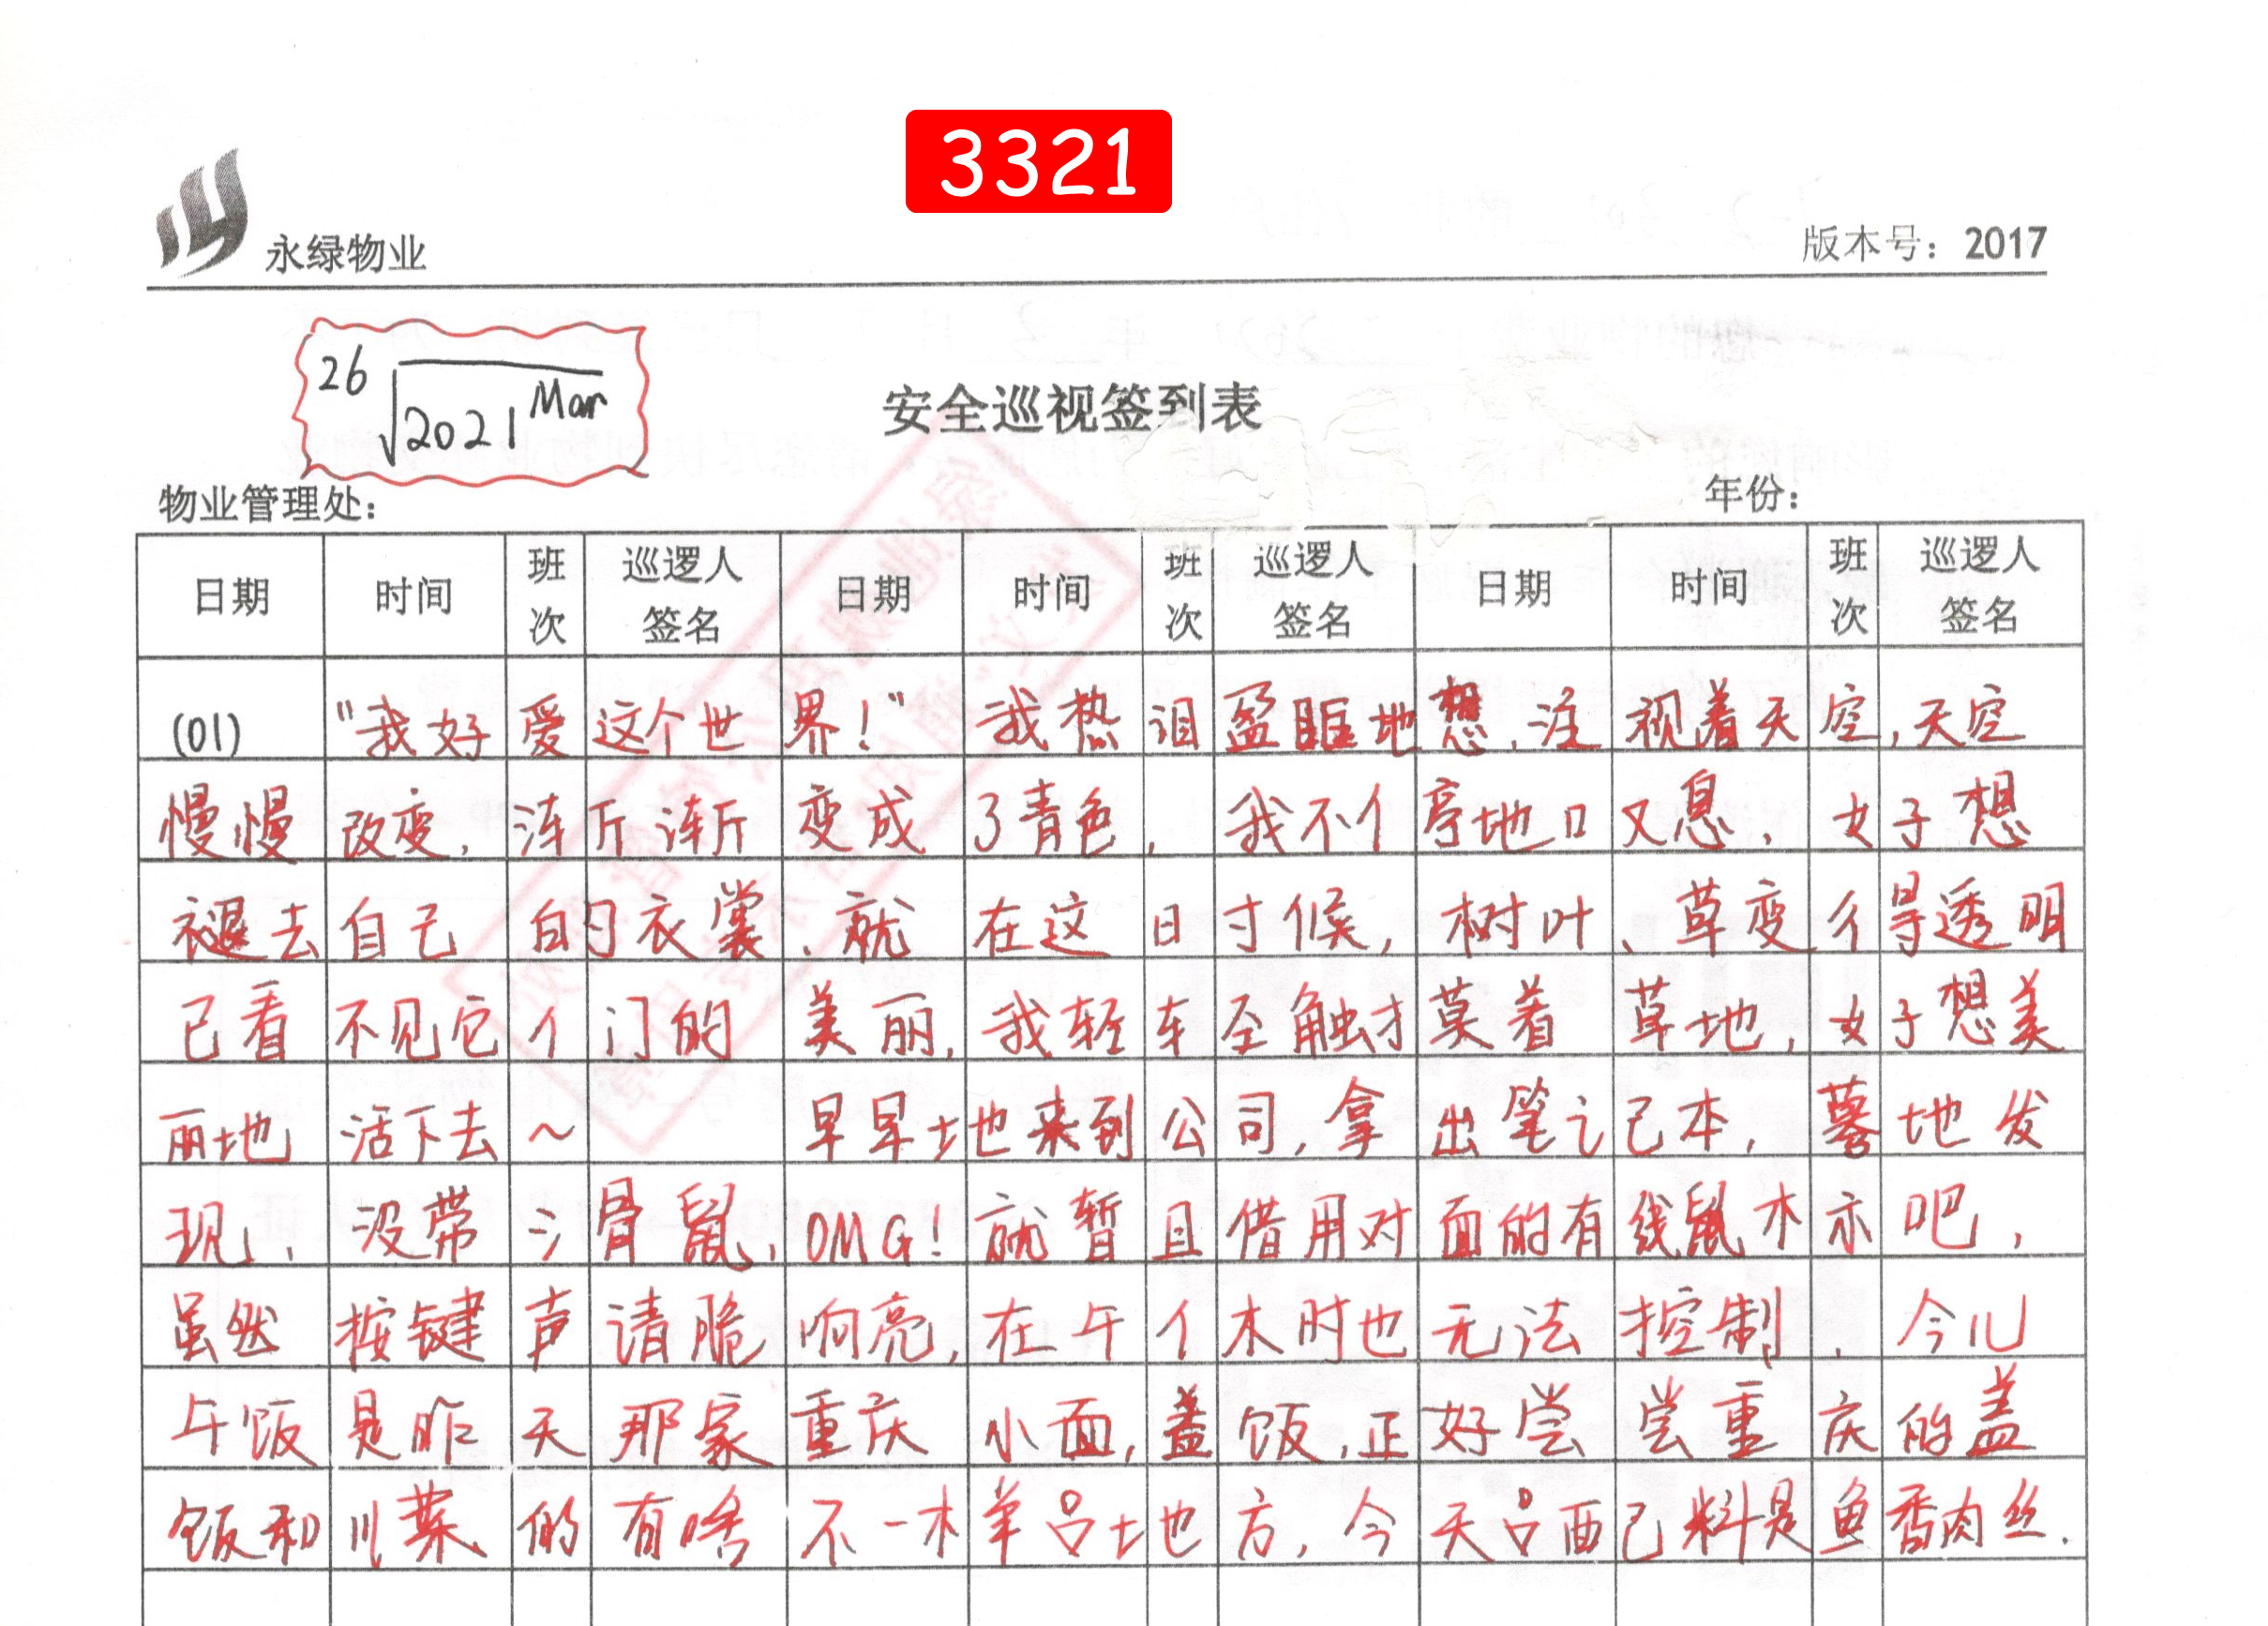 3321
永绿物业 版本号：2017
26√2021 Mar
安全巡视签到表
物业管理处： 年份：
日期 时间 班次 巡逻人签名 日期 时间 班次 巡逻人签名 日期 时间 班次 巡逻人签名
(01) "我好爱这个世界！" 我热泪盈眶地想，注视着天空，天空
慢慢改变，渐渐变成了青色，我不停地叹息，好想
褪去自己的衣裳、就在这时候，树叶、草变得透明
已看不见它们的美丽，我轻轻触摸着草地，好想美
丽地活下去～ 早早地来到公司，拿出笔记本，蓦地发
现，没带滑鼠，OMG！就暂且借用对面的有线鼠标吧，
虽然按键声请脆响亮，在午休时也无法控制．今儿
午饭是昨天那家重庆小面，盖饭，正好尝尝重庆的盖
饭和川菜、的有啥不一样吕地方，今天吕配料是鱼香肉丝．